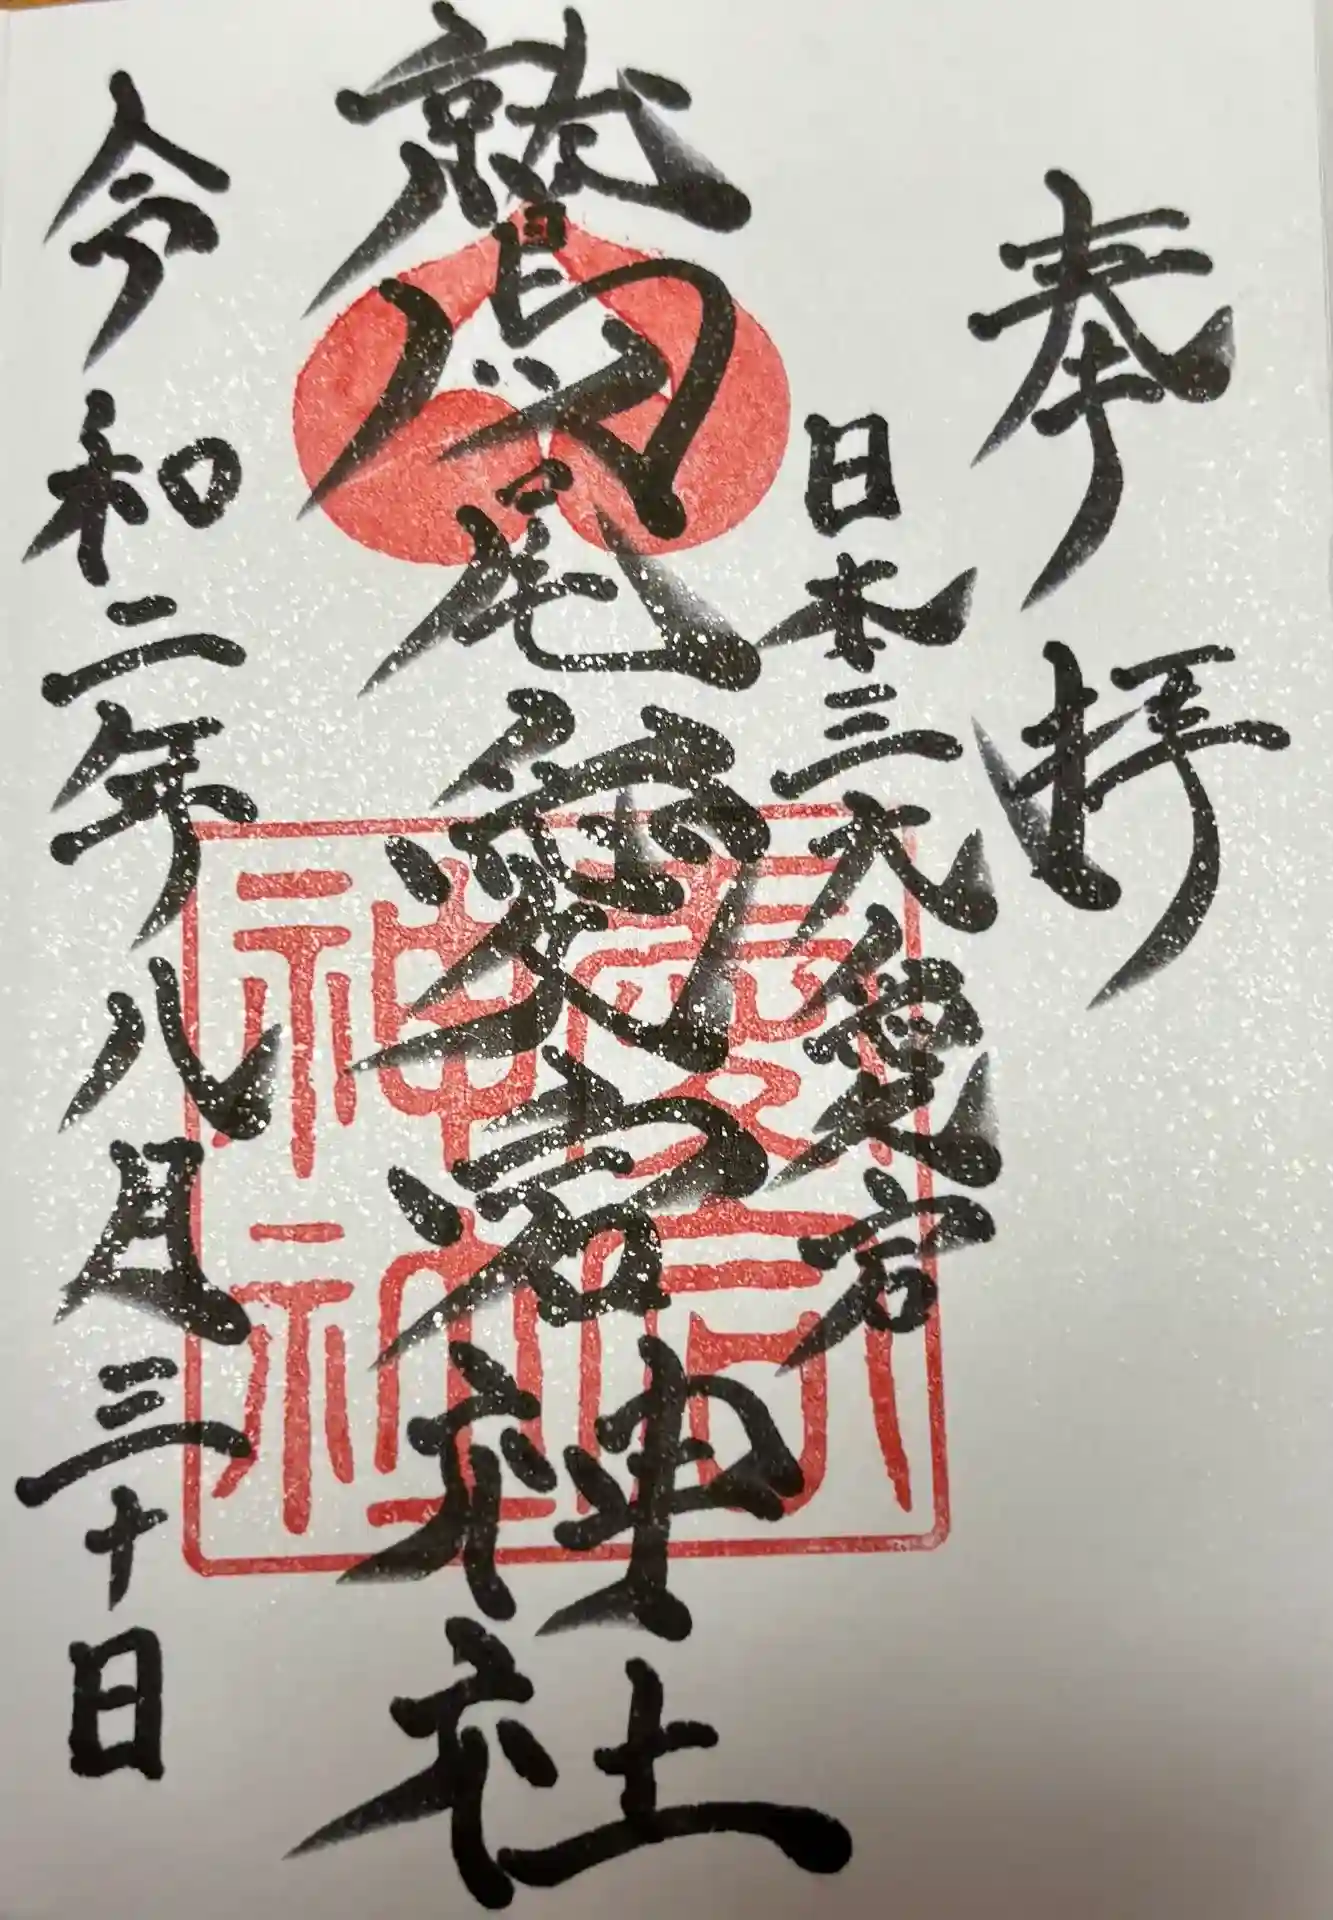 奉拝
日本三大愛宕
鷲尾愛宕神社
愛宕
神社
令和二年八月三十日